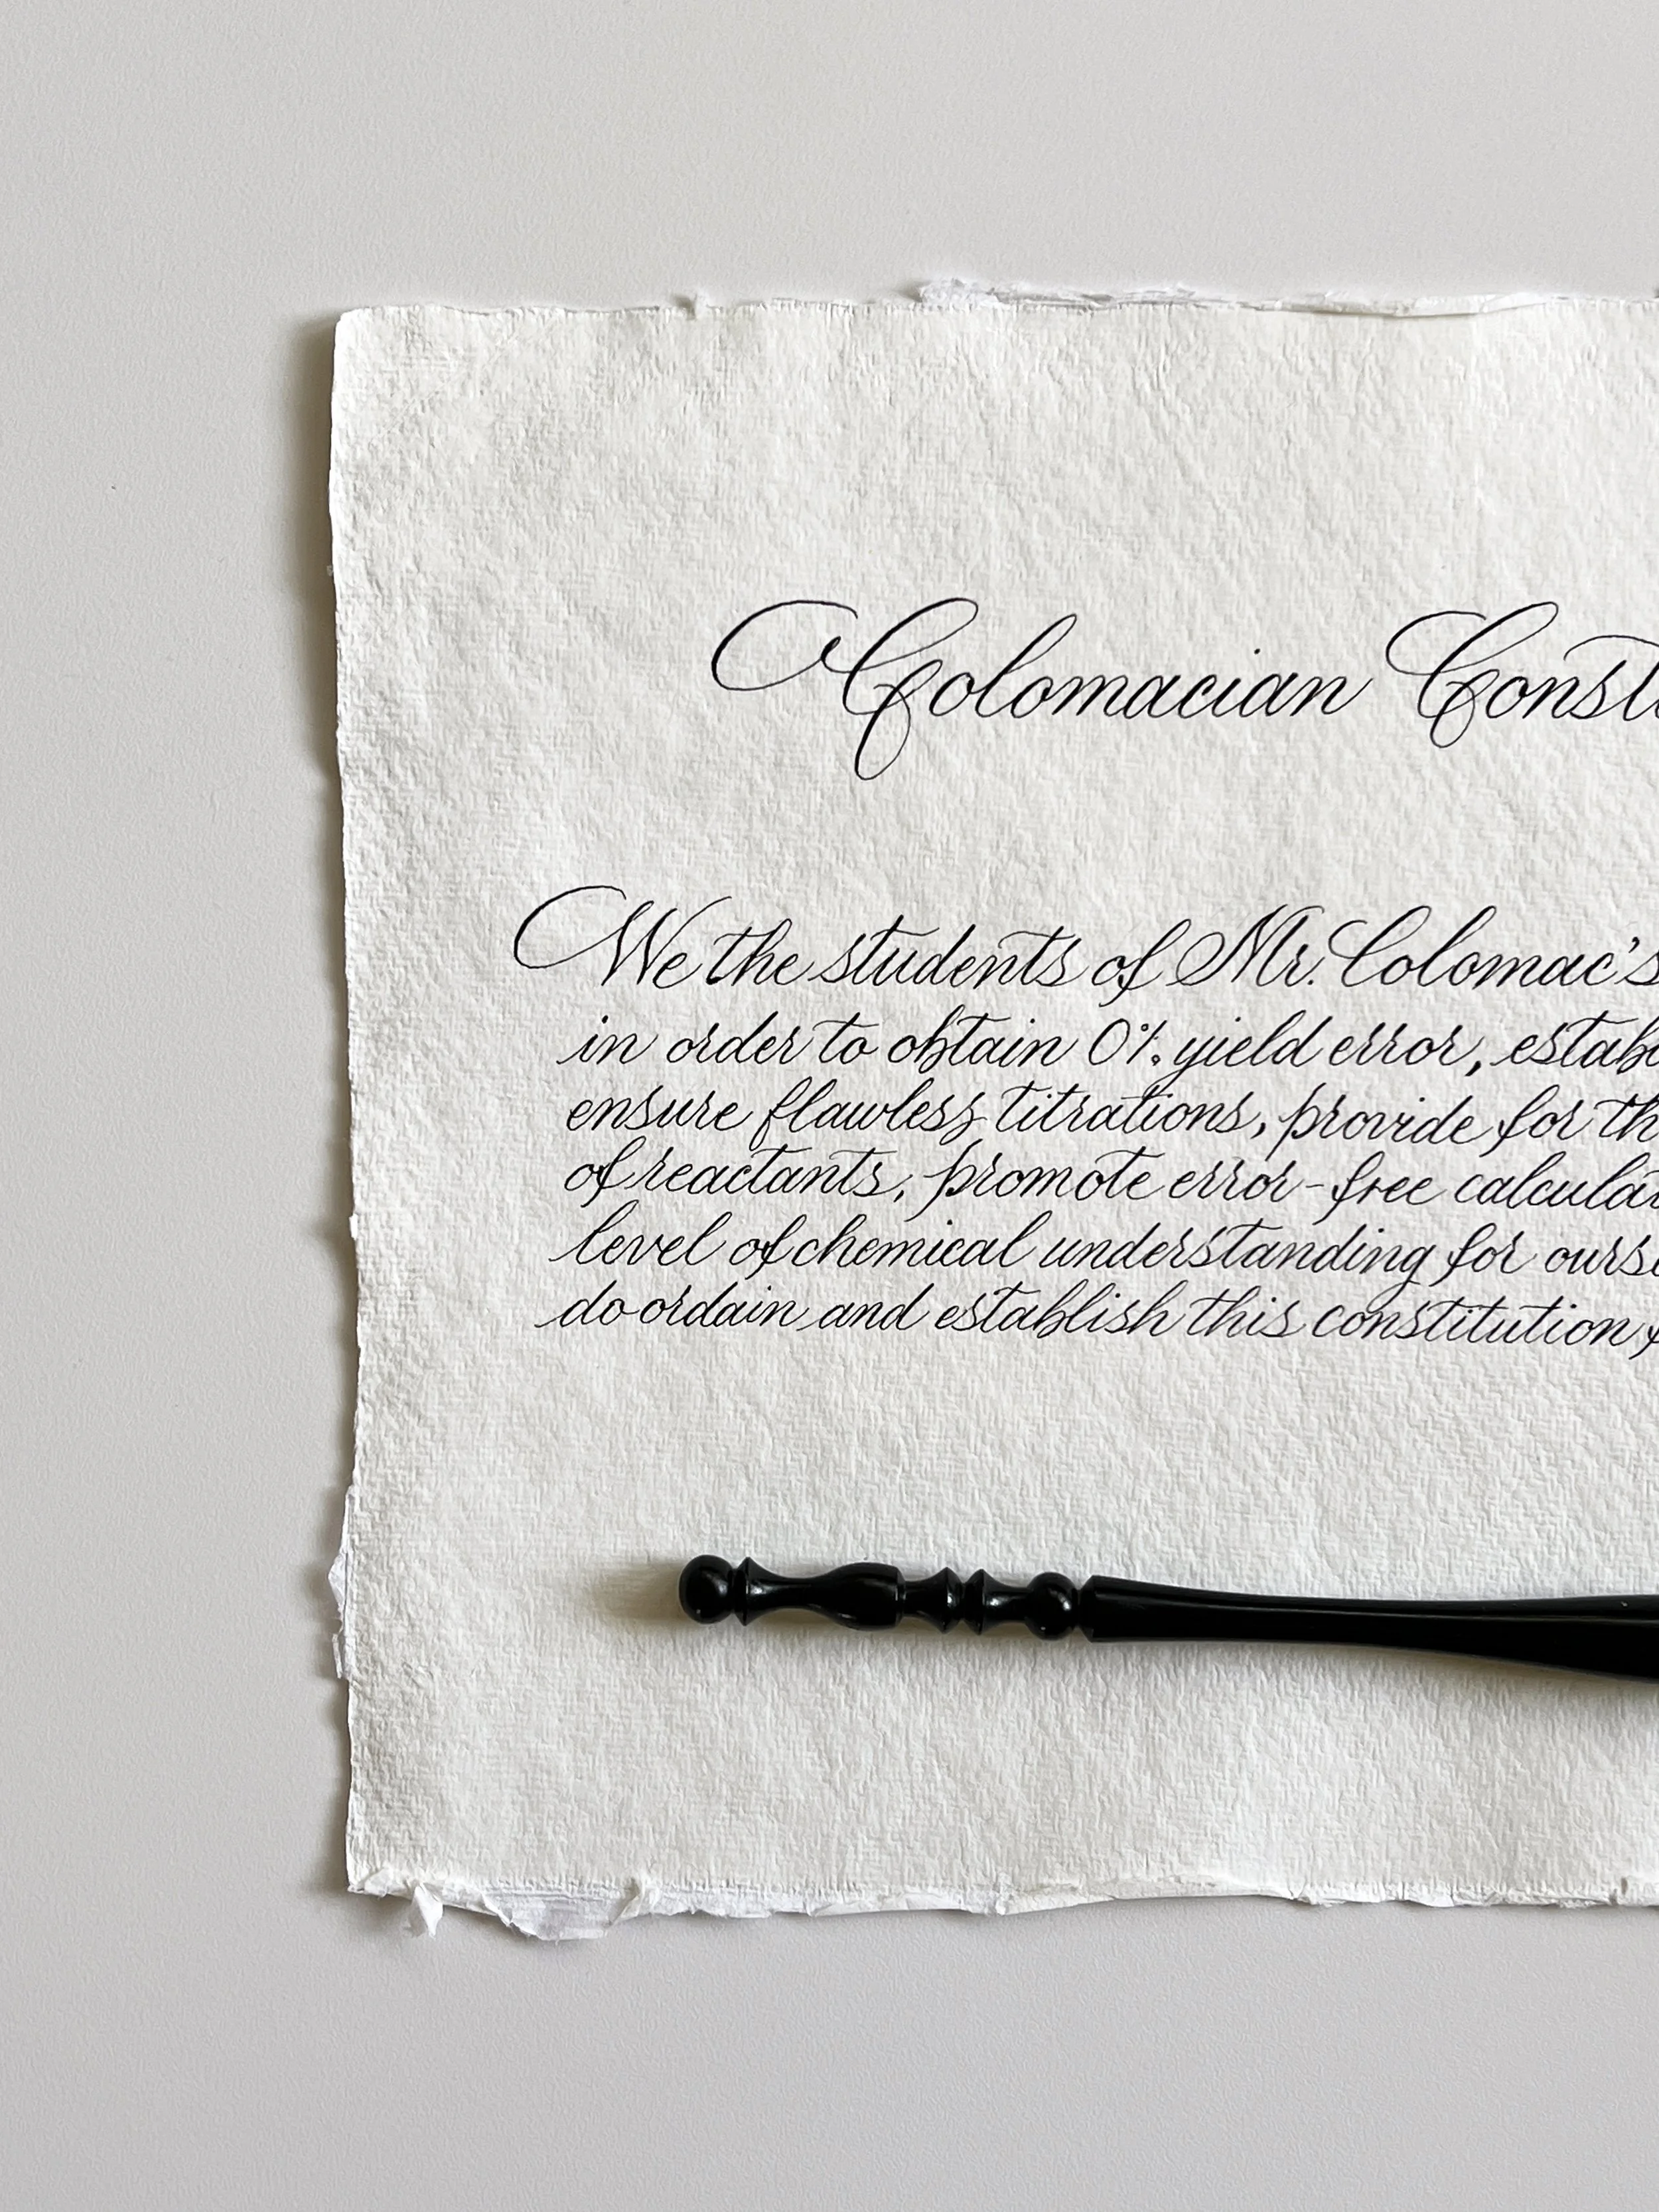 Colomacian Const
We the students of Mr. Colomac's
in order to obtain 0% yield error, estab
ensure flawless titrations, provide for th
of reactants, promote error-free calcula
level of chemical understanding for ourse
do ordain and establish this constitution f